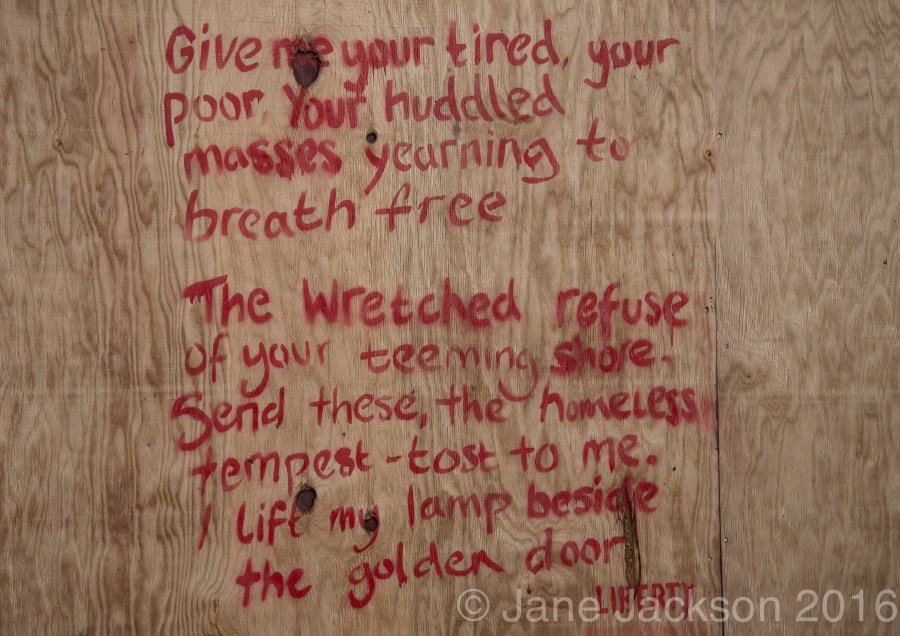 Give me your tired, your
poor, Your huddled
masses yearning to
breath free
The Wretched refuse
of your teeming shore.
Send these, the homeless
tempest-tost to me.
I lift my lamp beside
the golden door
LIBERTY
© Jane Jackson 2016